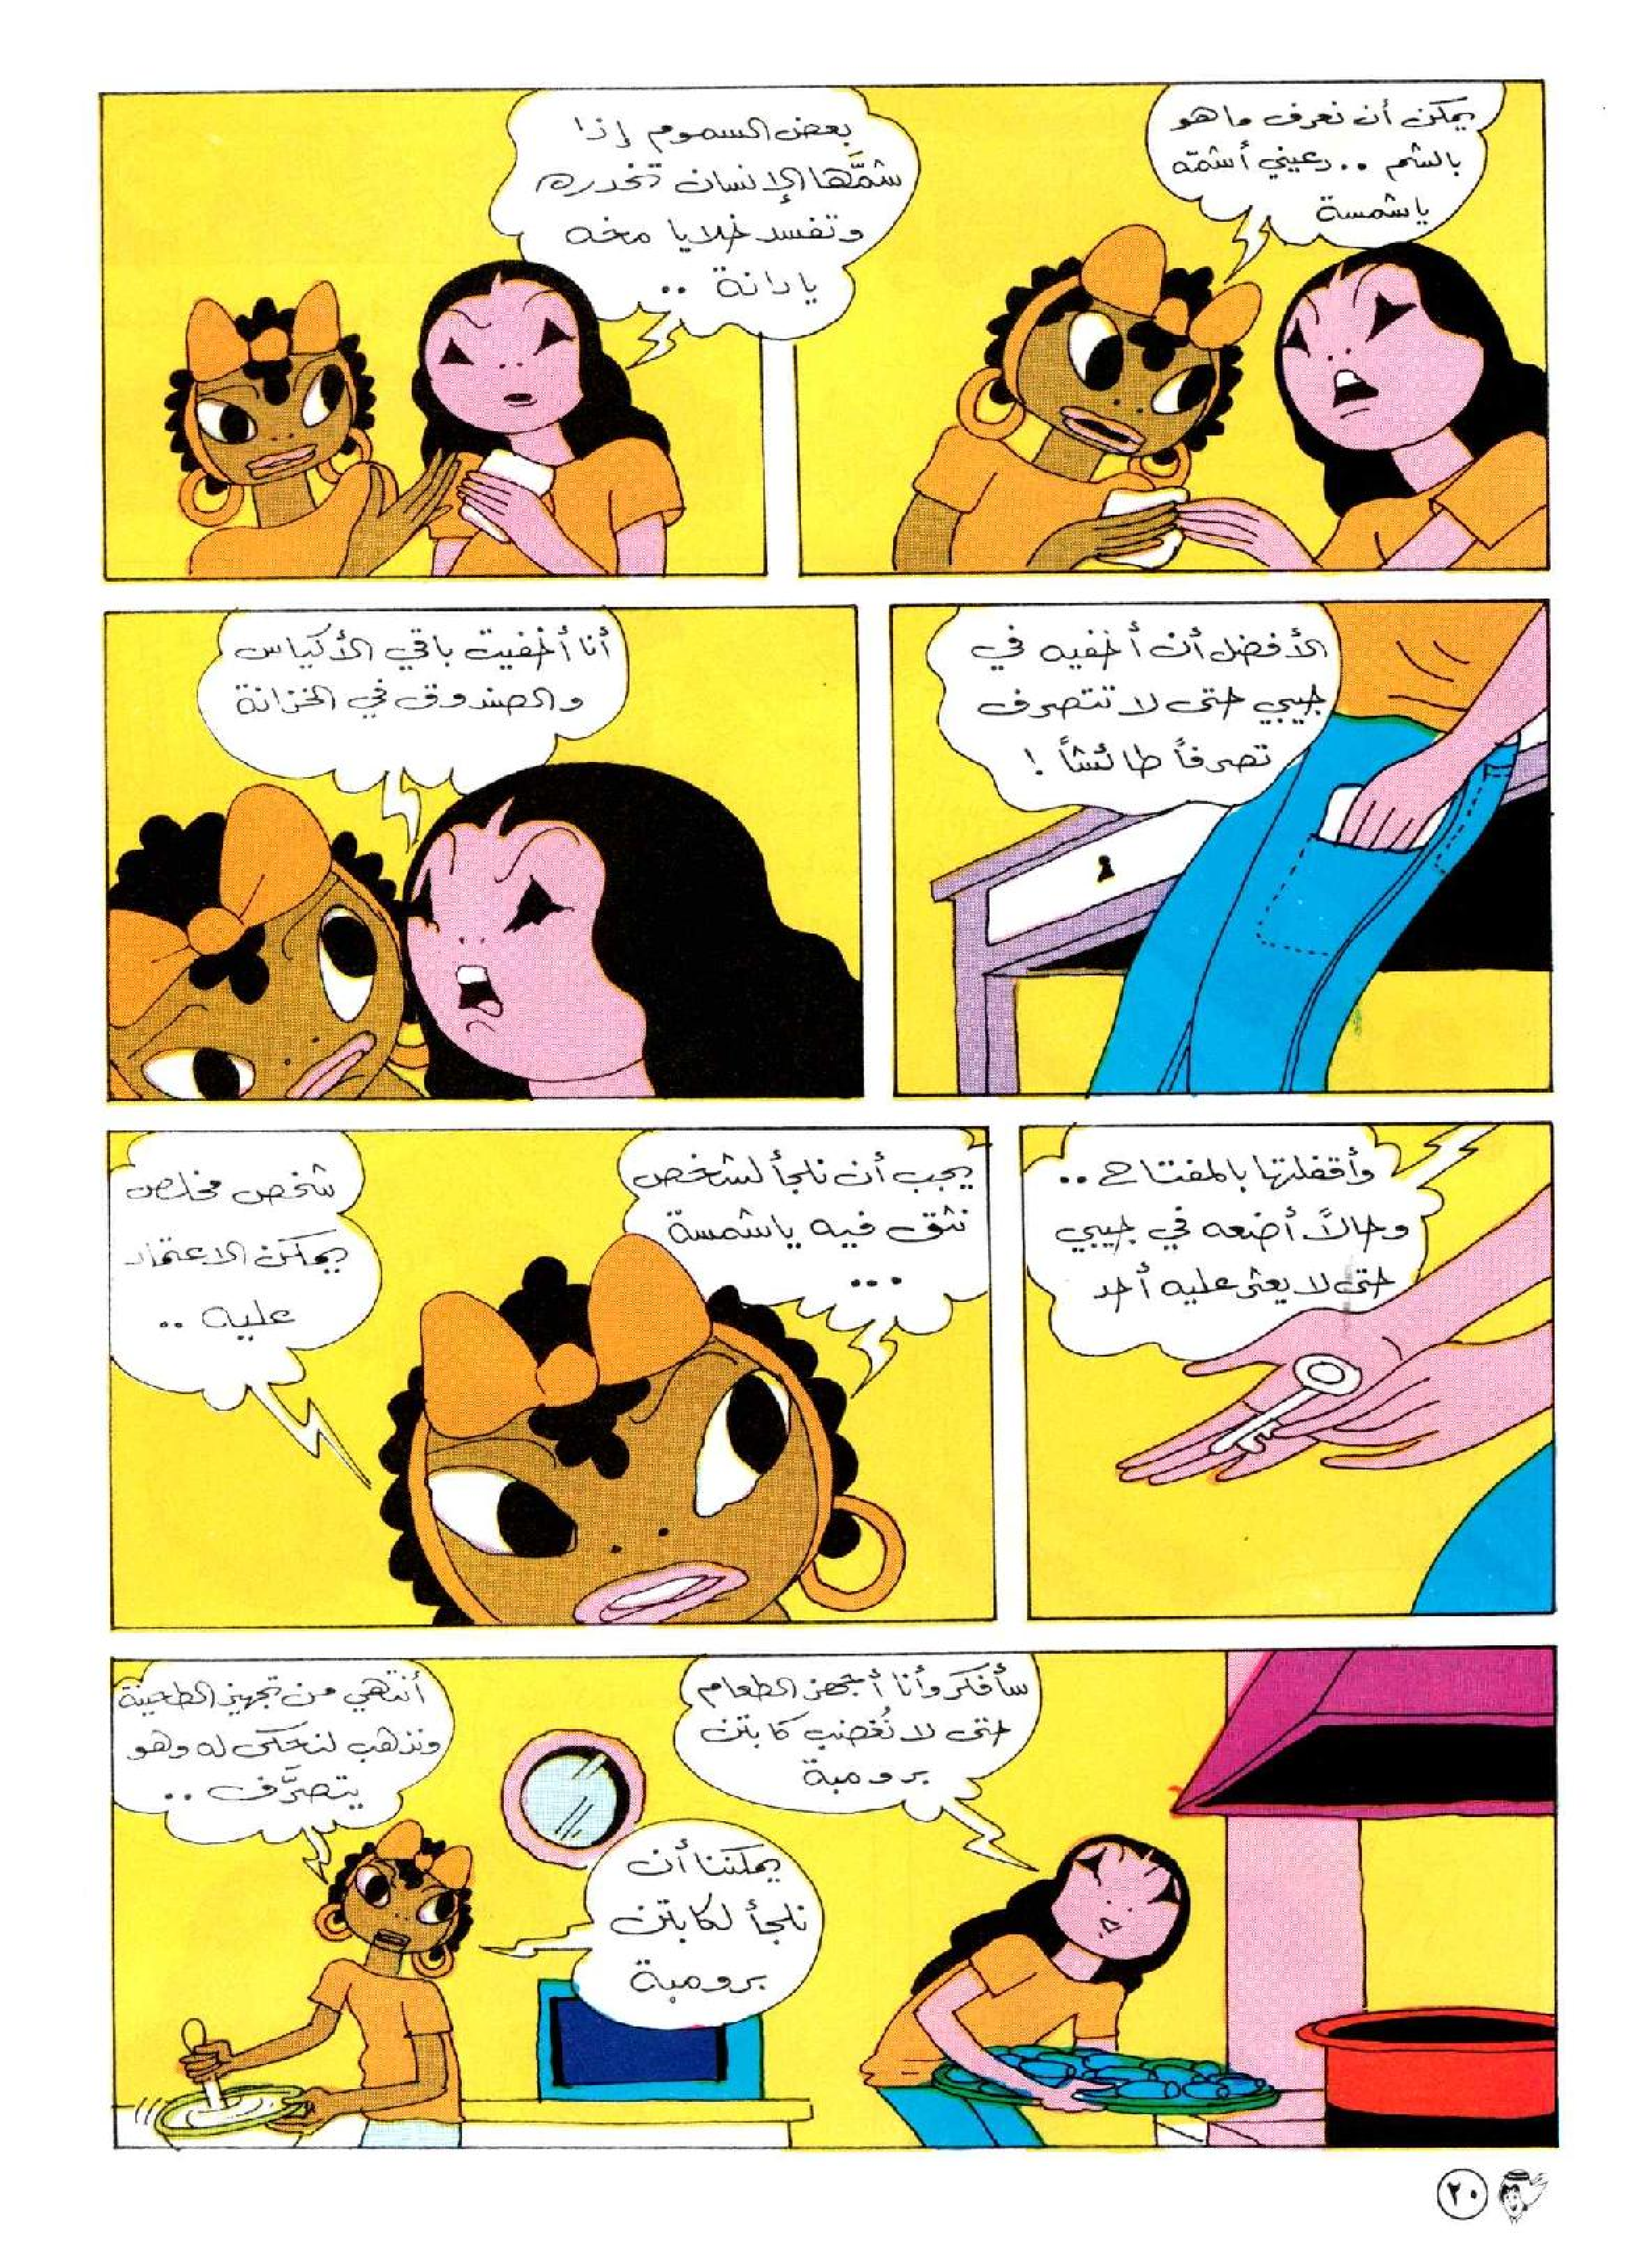 يمكن أن نعرف ما هو
بالشم .. دعيني أشمّه
يا شمسة
بعض السموم إذا
شمَّها الإنسان تخدره
وتفسد خلايا مخه
يا دانة ..
الأفضل أن أخفيه في
جيبي حتى لا تتصرف
تصرفاً طائشاً !
أنا أخفيت باقي الأكياس
والصندوق في الخزانة
وأقفلتها بالمفتاح ..
وحالاً أضعه في جيبي
حتى لا يعثر عليه أحد
يجب أن نلجأ لشخص
نثق فيه يا شمسة
...
شخص مخلص
يمكن الاعتماد
عليه ..
سأفكر وأنا أجهز الطعام
حتى لا نُغضب كابتن
برومبة
يمكننا أن
نلجأ لكابتن
برومبة
أنتهي من تجهيز الطحينة
ونذهب لنحكي له وهو
يتصرَّف ..
٢٠